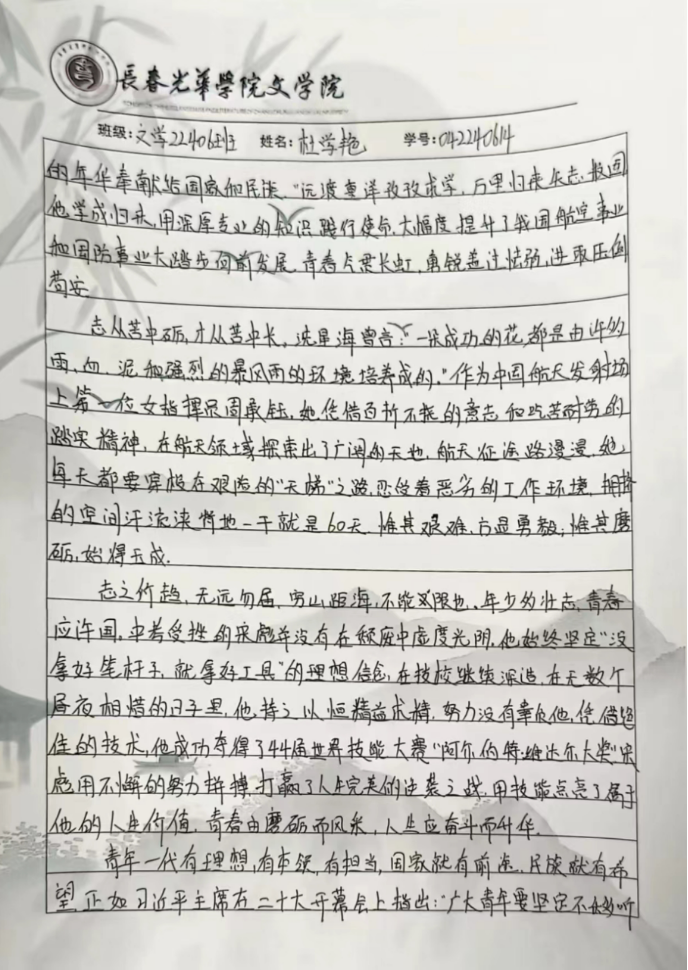 長春光華學院文学院
班级:文学22406班 姓名:杜学艳 学号:042240614
的年华奉献给国家和民族."远渡重洋孜孜求学,万里归来矢志报国
他学成归来,用深厚专业的知识践行使命,大幅度提升了我国航空事业
和国防事业大踏步向前发展,青春气贯长虹,勇锐盖过怯弱,进取压倒
苟安.
志从苦中砺,才从苦中长,冼星海曾言:"一朵成功的花都是由许多
雨、血、泥和强烈的暴风雨的环境培养成的."作为中国航天发射场
上第一位女指挥员周承钰,她凭借百折不挠的意志和吃苦耐劳的
踏实精神,在航天领域探索出了广阔的天地,航天征途路漫漫,她
每天都要穿梭在艰险的"天梯"之路,忍受着恶劣的工作环境,
的空间汗流浃背地一干就是60天.惟其艰难,方显勇毅;惟其磨
砺,始得玉成.
志之所趋,无远勿届,穷山距海,不能限也.年少的壮志,青春
应许国,中考受挫的宋彪并没有在颓废中虚度光阴,他始终坚定"没
拿好笔杆子,就拿好工具"的理想信念,在技校继续深造,在无数个
昼夜相惜的日子里,他持之以恒精益求精,努力没有辜负他,凭借绝
佳的技术,他成功夺得了44届世界技能大赛"阿尔伯特·维达尔大奖"宋
彪用不懈的努力拼搏,打赢了人生完美的逆袭之战,用技能点亮了属于
他的人生价值,青春由磨砺而风采,人生应奋斗而升华.
青年一代有理想,有本领,有担当,国家就有前途,民族就有希
望,正如习近平主席在二十大开幕会上指出:"广大青年要坚定不移听